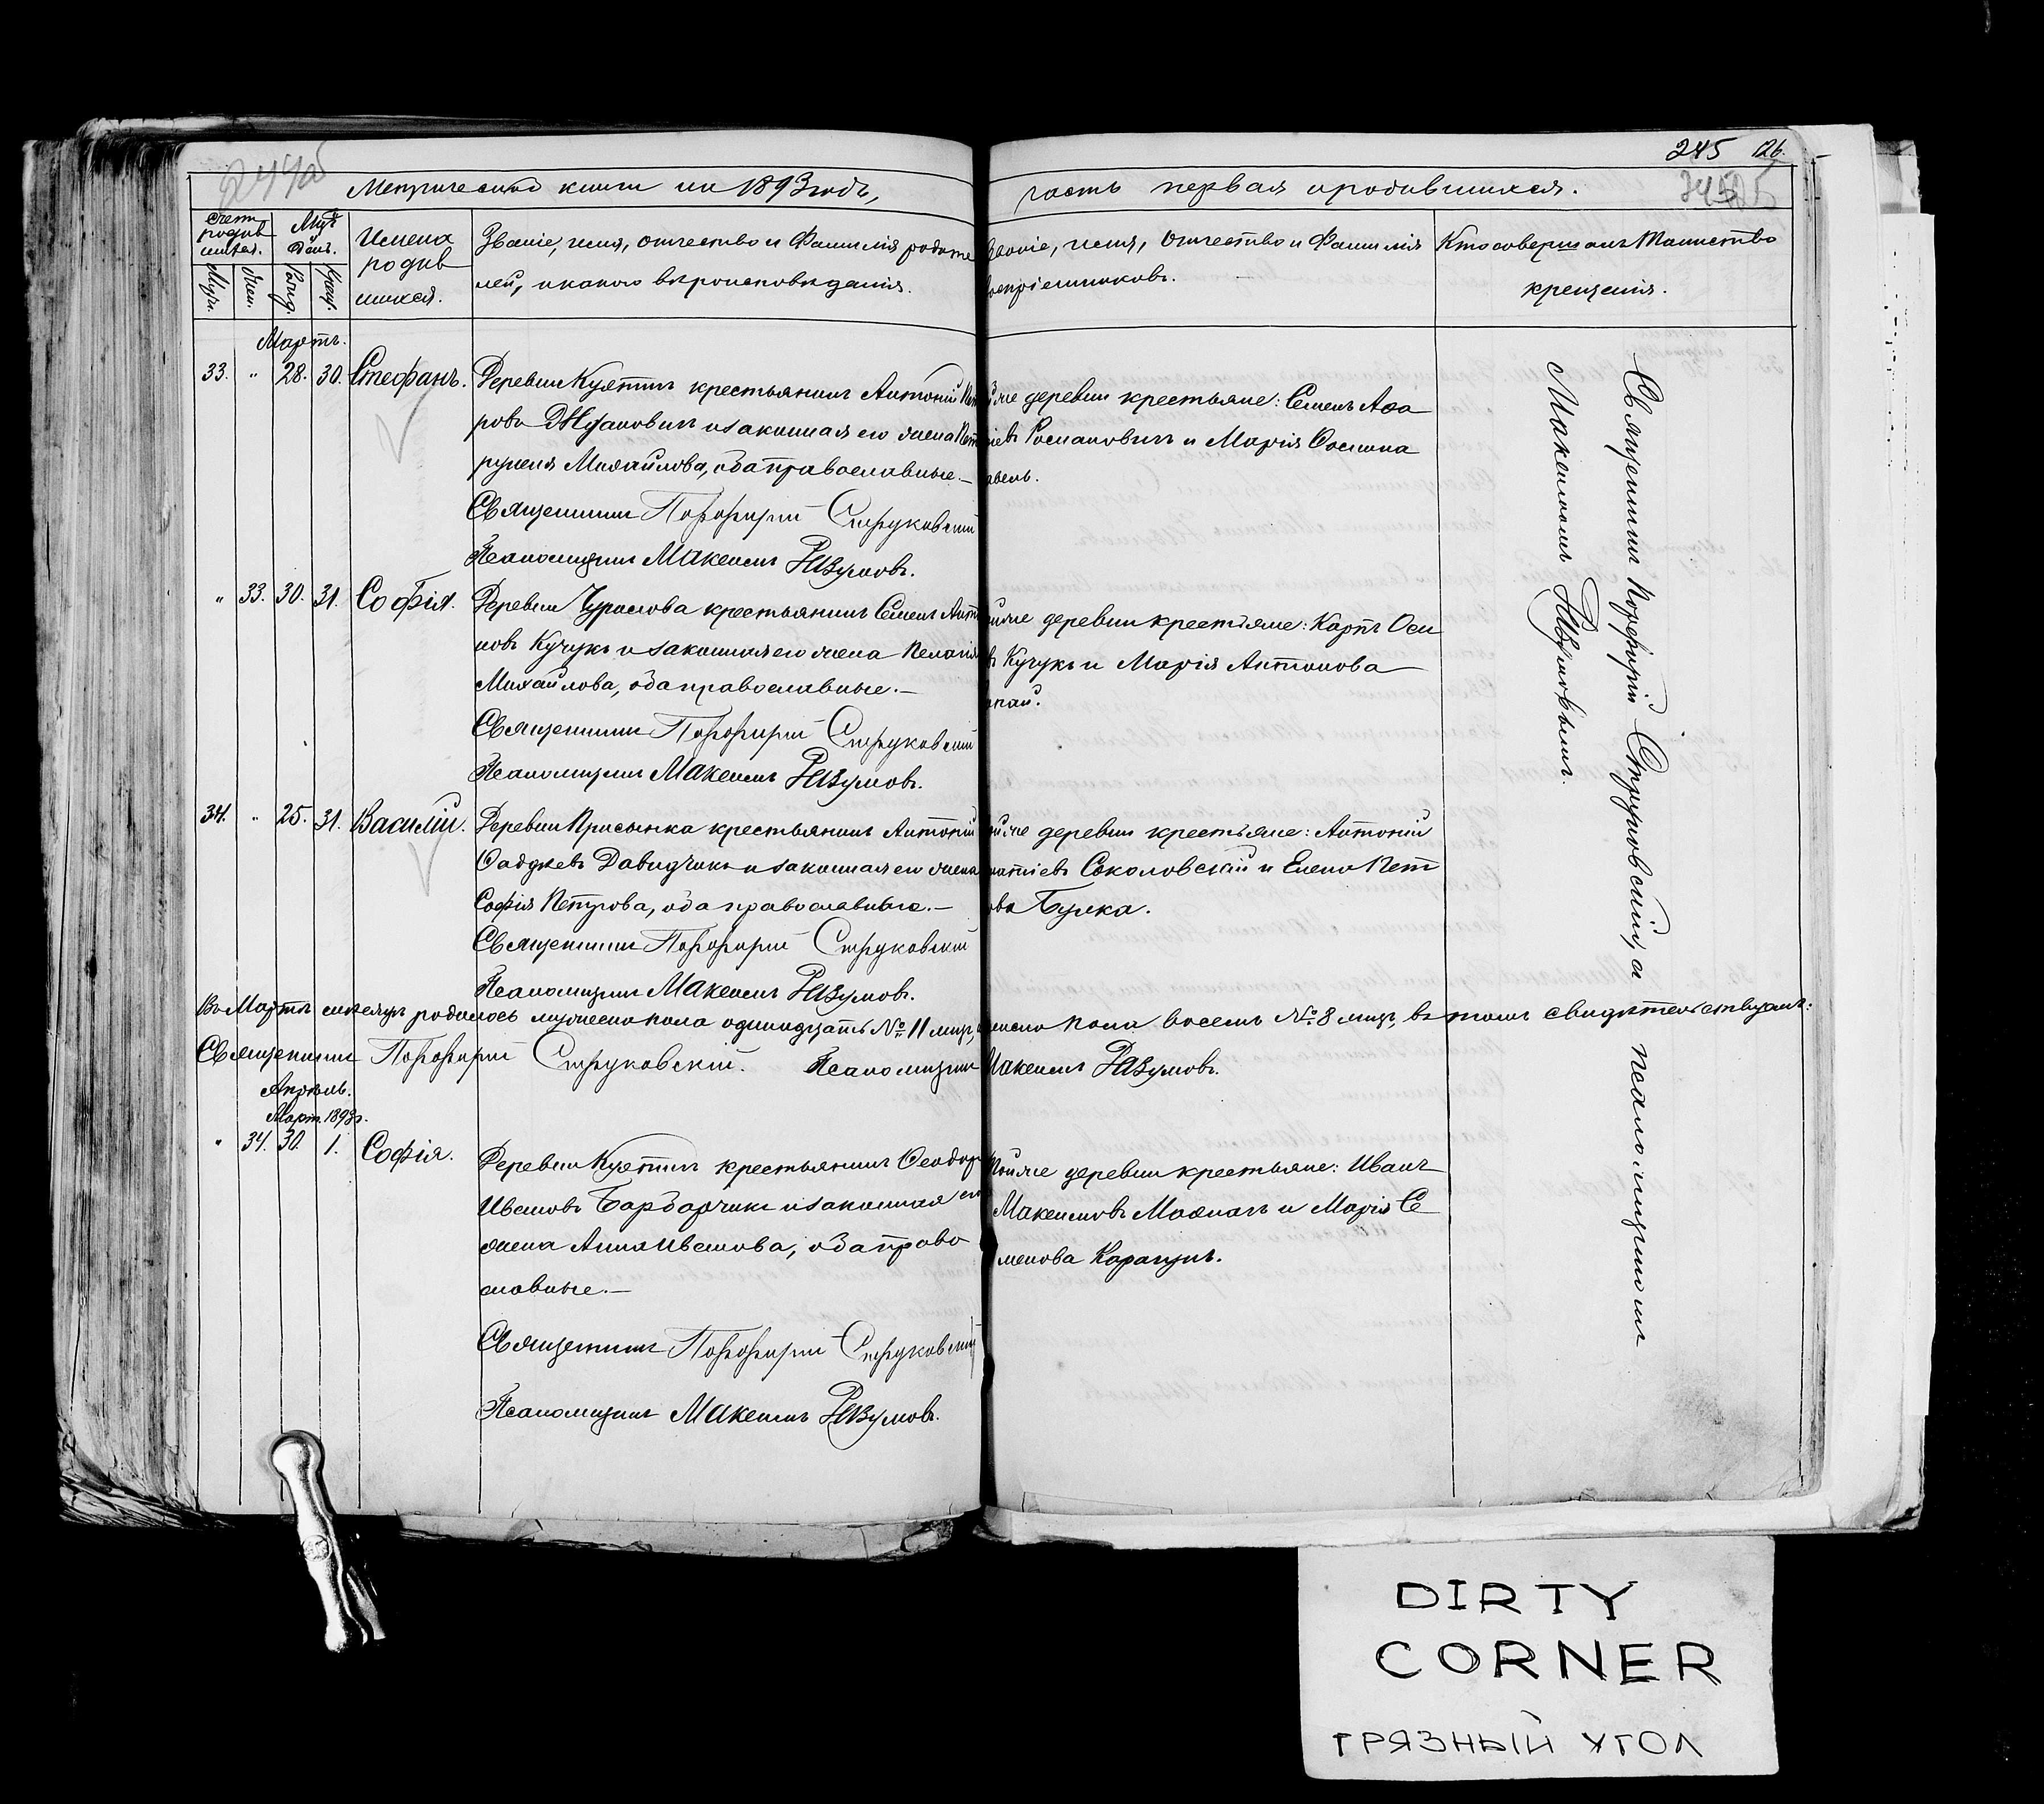 245 126.
244об
Метрической книги на 1893 годъ, часть первая о родившихся.
Счетъ родившихся.
Муж.
Жен.
Мѣс. и день.
Рожд.
Крещ.
Имена родившихся.
Званіе, имя, отчество и фамилія родите
лей, и какого вѣроисповѣданія.
Званіе, имя, отчество и фамилія
воспріемниковъ.
Кто совершалъ Таинство
крещенія.
Мартъ.
33. " 28. 30. Стефанъ.
Деревни крестьянинъ Антоній Пет
ровъ и законная его жена Пет
рунеля Михайлова, оба православные.—
Священникъ Порфирій Струковскій
Псаломщикъ Максимъ Разумовъ.
же деревни крестьяне: Семенъ
Романовичъ и Марія
" 33. 30. 31. Софія.
Деревни крестьянинъ Семенъ Анто
новъ Кучукъ и законная его жена Пелагія
Михайлова, оба православные.—
Священникъ Порфирій Струковскій
Псаломщикъ Максимъ Разумовъ.
же деревни крестьяне: Карпъ Оси
въ Кучукъ и Марія Антонова
34. " 25. 31. Василій.
Деревни Присынка крестьянинъ Антоній
Давидчикъ и законная его жена
Софія Петрова, оба православные.—
Священникъ Порфирій Струковскій
Псаломщикъ Максимъ Разумовъ.
же деревни крестьяне: Антоній
Соколовскій и Елена Пет
ова Булка.
Въ Мартѣ мѣсяцѣ родилось мужеска пола одинадцать № 11 муж, женска пола восемь № 8 жен, въ томъ свидѣтельствуютъ:
Священникъ Порфирій Струковскій. Псаломщикъ Максимъ Разумовъ.
Апрѣль.
Март. 1893 г.
" 34. 30. 1. Софія.
Деревни крестьянинъ Ѳеодоръ
Ивановъ Барбарчикъ и законная его
жена Анна Иванова, оба право
славные.—
Священникъ Порфирій Струковскій
Псаломщикъ Максимъ Разумовъ.
Той же деревни крестьяне: Иванъ
Максимовъ и Марія Се
менова
Священникъ Порфирій Струковскій, а псаломщикомъ
Максимомъ Разумовымъ.
DIRTY
CORNER
ГРЯЗНЫЙ УГОЛ